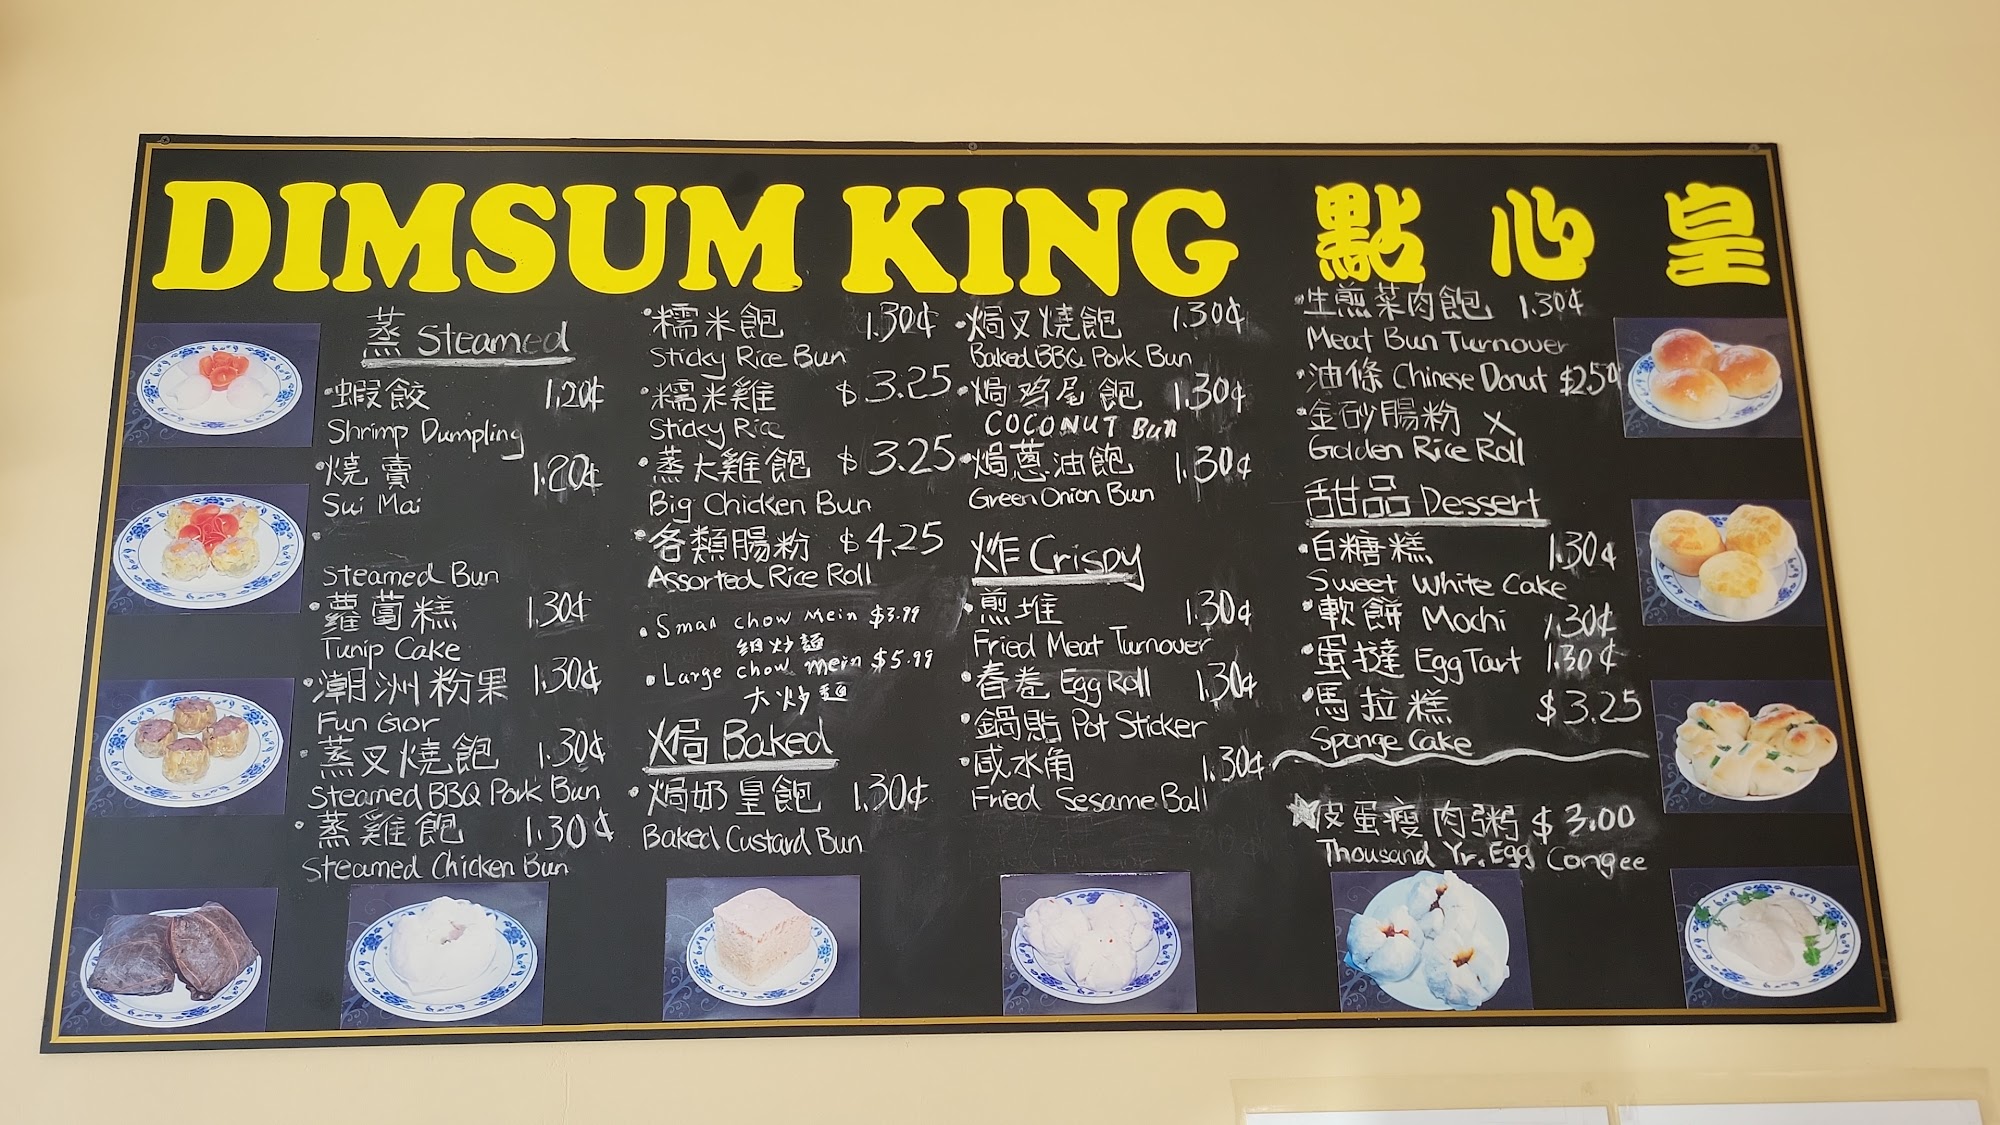 DIMSUM KING 點心皇
蒸 Steamed
蝦餃 1.20¢
Shrimp Dumpling
燒賣 1.20¢
Sui Mai
Steamed Bun
蘿蔔糕 1.30¢
Tunip Cake
潮洲粉果 1.30¢
Fun Gor
蒸叉燒飽 1.30¢
Steamed BBQ Pork Bun
蒸雞飽 1.30¢
Steamed Chicken Bun
糯米飽 1.30¢
Sticky Rice Bun
糯米雞 $3.25
Sticky Rice
蒸大雞飽 $3.25
Big Chicken Bun
各類腸粉 $4.25
Assorted Rice Roll
Small chow mein $3.99
細炒麵
Large chow mein $5.99
大炒麵
焗 Baked
焗奶皇飽 1.30¢
Baked Custard Bun
焗叉燒飽 1.30¢
Baked BBQ Pork Bun
焗鸡尾飽 1.30¢
COCONUT Bun
焗蔥油飽 1.30¢
Green Onion Bun
炸 Crispy
煎堆 1.30¢
Fried Meat Turnover
春卷 Egg Roll 1.30¢
鍋貼 Pot Sticker
咸水角 1.30¢
Fried Sesame Ball
生煎菜肉飽 1.30¢
Meat Bun Turnover
油條 Chinese Donut $2.50
金砂腸粉 X
Golden Rice Roll
甜品 Dessert
白糖糕 1.30¢
Sweet White Cake
軟餅 Mochi 1.30¢
蛋撻 Egg Tart 1.30¢
馬拉糕 $3.25
Sponge Cake
皮蛋瘦肉粥 $3.00
Thousand Yr. Egg Congee